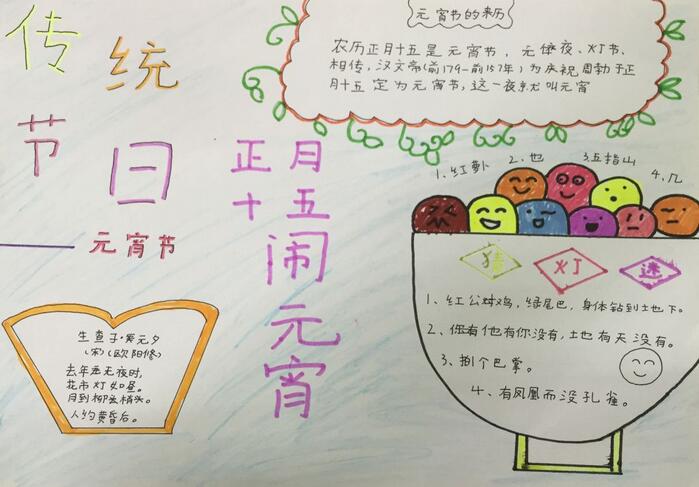 传统
节日
元宵节
元宵节的来历
农历正月十五是元宵节，元宵夜、灯节、
相传，汉文帝(前179—前157年)为庆祝周勃于正
月十五 定为元宵节，这一夜就叫元宵
正月
十五
闹元宵
1、红萝卜 2、也 3、五指山 4、几
猜 灯 谜
1、红公鸡，绿尾巴，身体钻到土地下。
2、你有他有你没有，土也有天没有。
3、捌个巴掌。
4、有凤凰而没孔雀。
生查子·元夕
(宋)(欧阳修)
去年元夜时，
花市灯如昼。
月到柳梢头。
人约黄昏后。